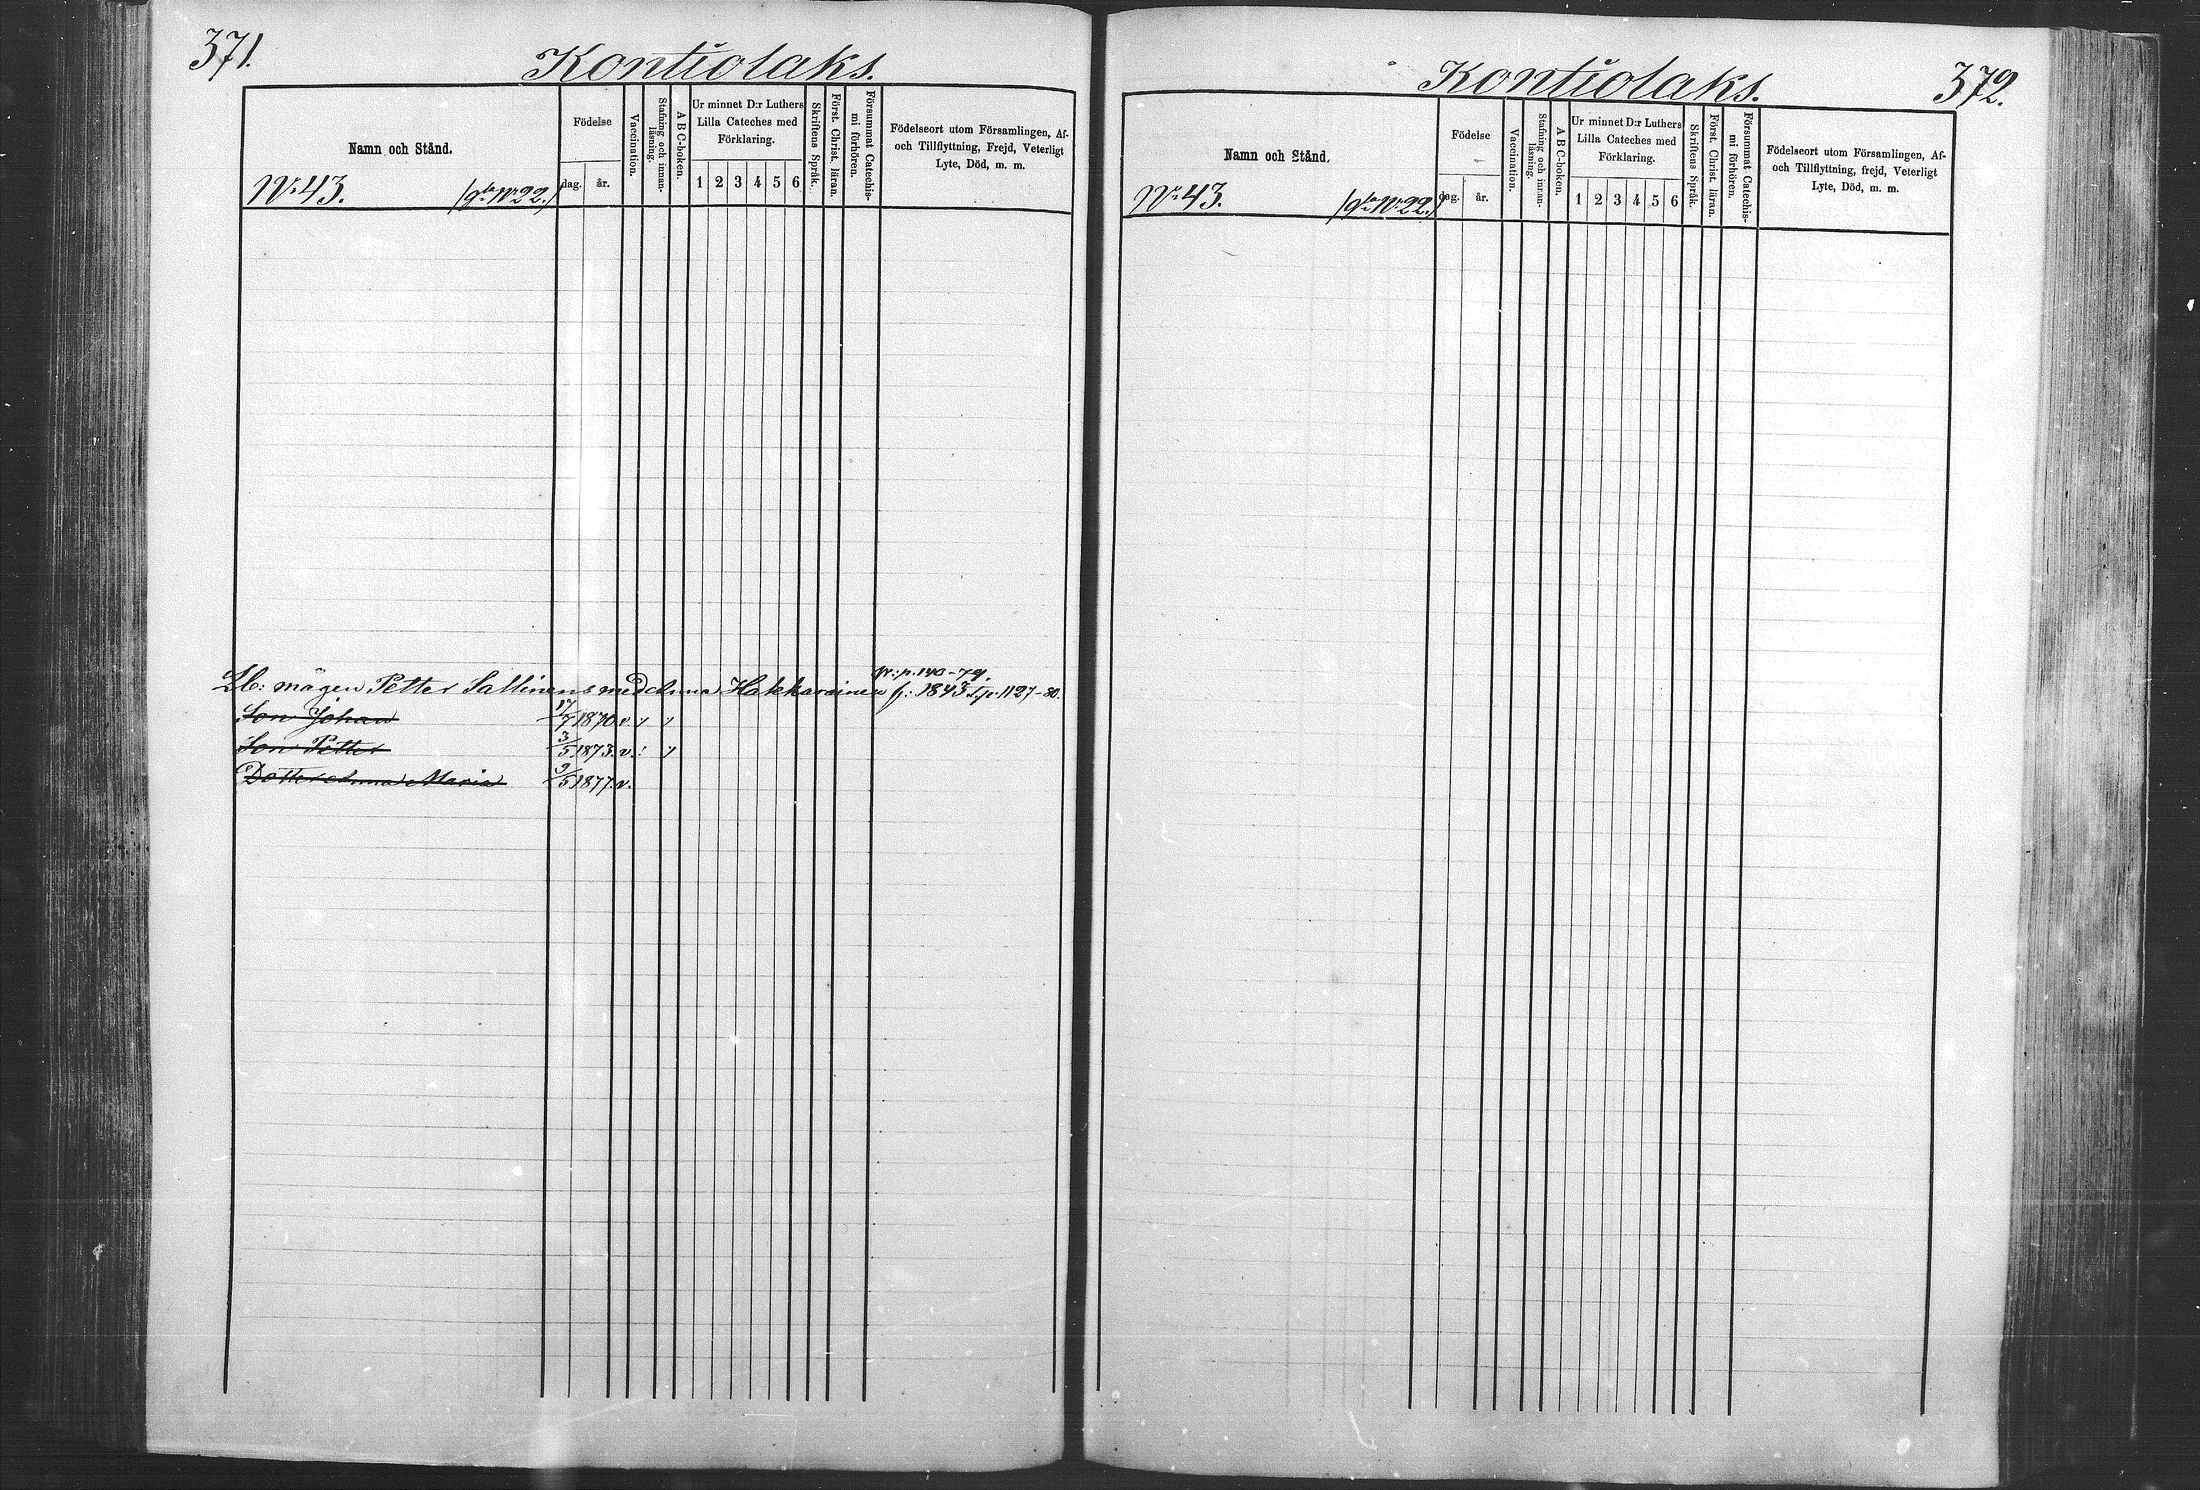 371.
Kontiolaks.
Namn och Stånd.
Födelse
dag.
år.
Vaccination.
Stafning och innan-
läsning.
A B C-boken.
Ur minnet D:r Luthers
Lilla Cateches med
Förklaring.
1 2 3 4 5 6
Skriftens Språk.
Först. Christ. läran.
Försummat Catechis-
mi förhören.
Födelseort utom Församlingen, Af-
och Tillflyttning, Frejd, Veterligt
Lyte, Död, m. m.
N:43. /gla N:22./
fr: p. 140-79.
Lb: mågen Petter Sallinens med Anna Hakkarainen f: 1843. p. 1127-80.
Son Johan 17/7 1870. v.
Son Petter 3/5 1873. v.
Dotter Anna Maria 9/5 1877. v.
Kontiolaks.
372.
Namn och Stånd.
Födelse
dag.
år.
Vaccination.
Stafning och innan-
läsning.
A B C-boken.
Ur minnet D:r Luthers
Lilla Cateches med
Förklaring.
1 2 3 4 5 6
Skriftens Språk.
Först. Christ. läran.
Försummat Catechis-
mi förhören.
Födelseort utom Församlingen, Af-
och Tillflyttning, frejd, Veterligt
Lyte, Död, m. m.
N:43. /gla N:22./